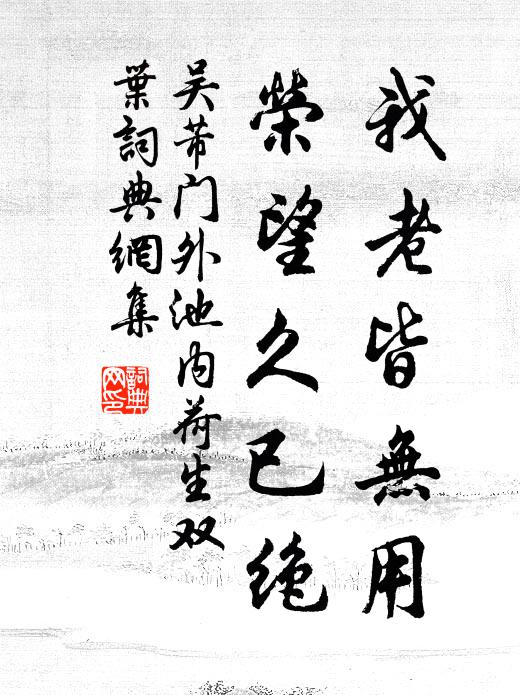 我老皆無用
榮望久已绝
吴芾门外池内荷生双
葉詞典網集
詞典
网印